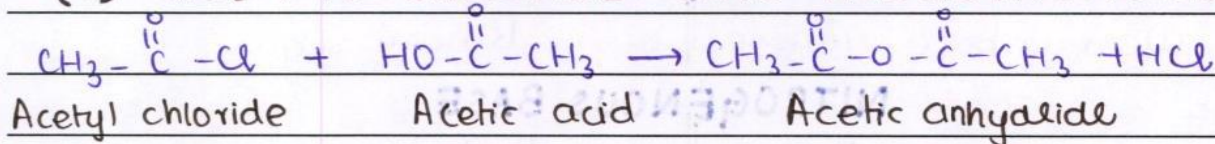 O O O O
|| || || ||
CH₃-C-Cl + HO-C-CH₃ → CH₃-C-O-C-CH₃ + HCl
Acetyl chloride Acetic acid Acetic anhydride